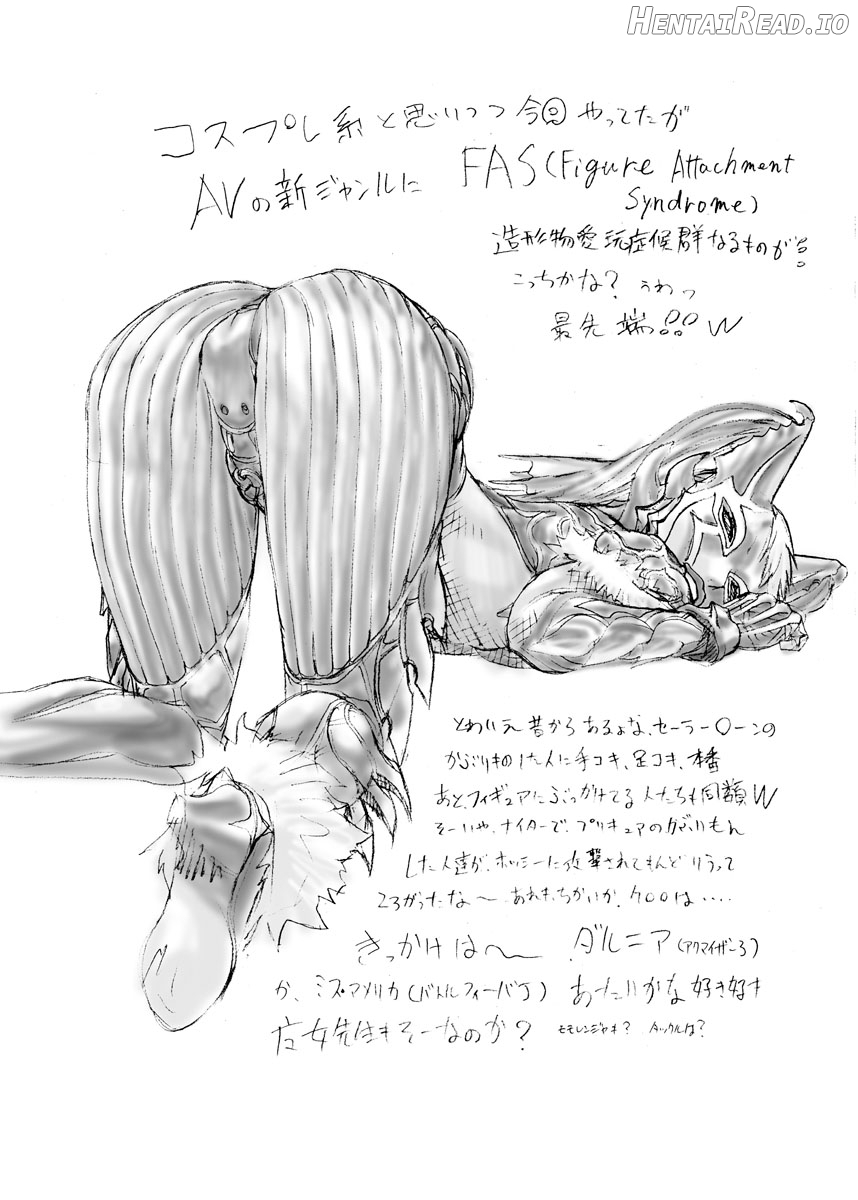 HENTAIREAD.IO
コスプレ系と思いつつ今回やってたが
AVの新ジャンルに FAS(Figure Attachment
Syndrome)
造形物愛玩症候群なるものが!!
こっちかな? うわっ
最先端!!! W
とわいえ昔からあるよな、セーラー〇ーンの
かぶりもの した人に手コキ、足コキ、本番
あと、フィギュアにぶっかけてる人たちも同類W
そーいや、ナイターで、プリキュアのかぶりもん
した人達が、ホッシーに攻撃されてもんどりうって
ころがったな〜 あれもちかいか、
きっかけは〜 ダルニア(アクマイザー3)
か、ミス・アメリカ(バトルフィーバーJ) あたりかな 好き好き
モモレンジャー? タックルは?